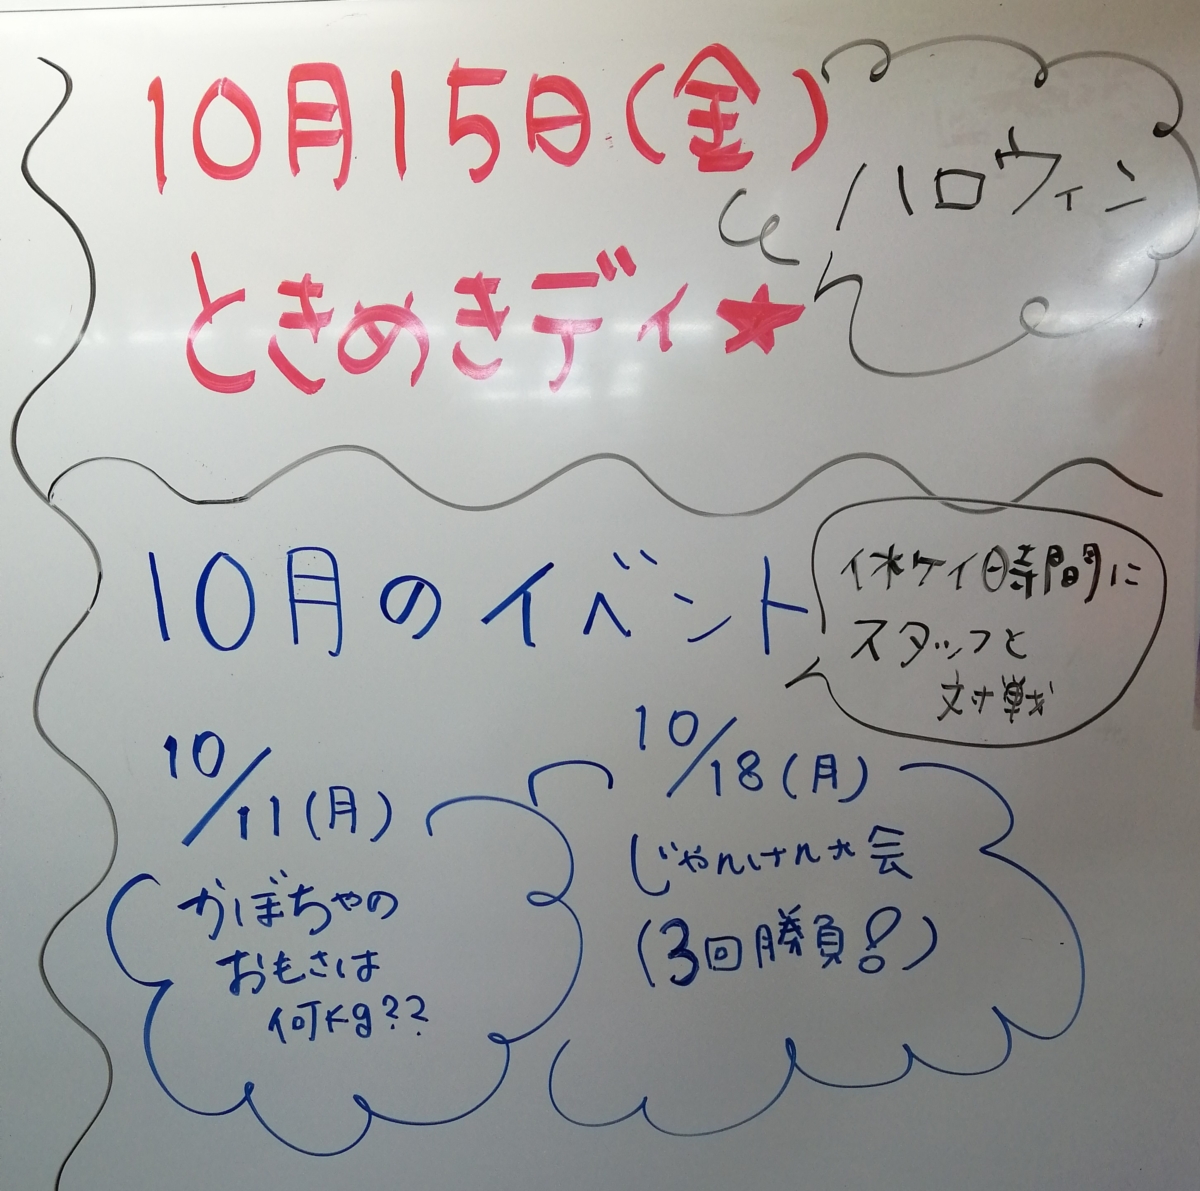 10月15日(金)
ときめきディ★
ハロウィン
10月のイベント
休ケイ時間に
スタッフと
対戦
10/11(月)
かぼちゃの
おもさは
何kg??
10/18(月)
じゃんけん大会
(3回勝負!)